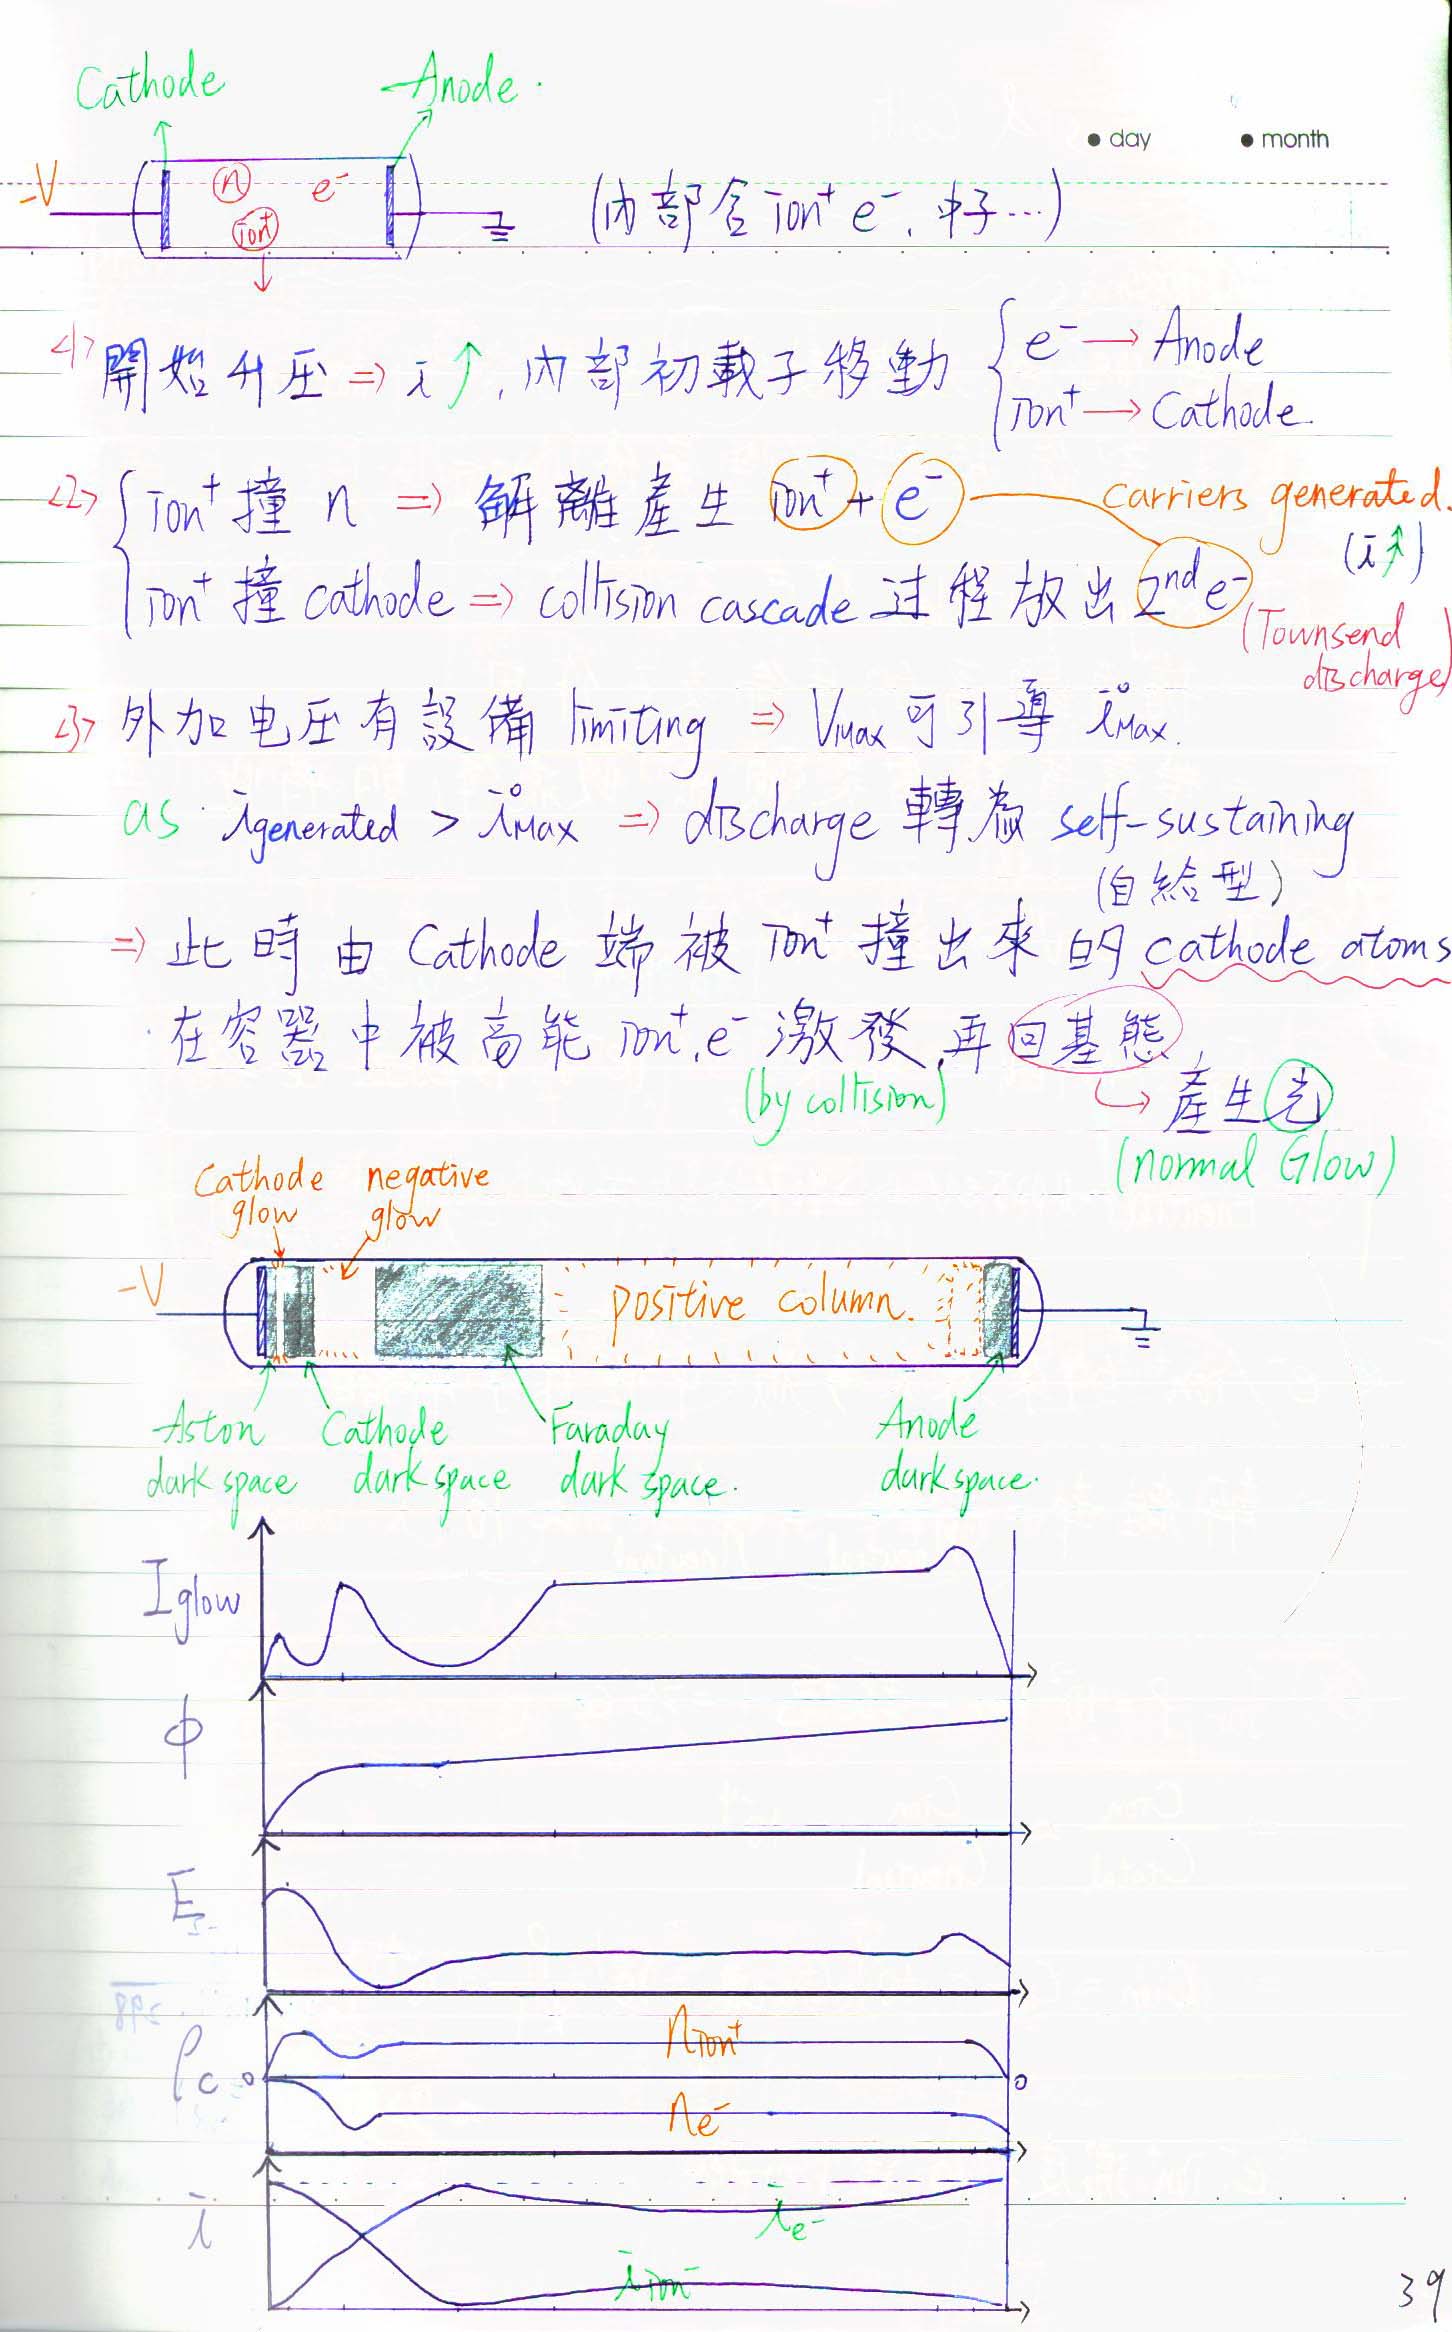 Cathode Anode.
● day ● month
-V n e⁻ ion⁺ (內部含 ion⁺ e⁻, 中子…)
<1> 開始升压 ⇒ i↑, 內部初載子移動 { e⁻ → Anode
ion⁺ → Cathode.
<2> { ion⁺ 撞 n ⇒ 解離產生 ion⁺ + e⁻ carriers generated.
(i↑)
ion⁺ 撞 cathode ⇒ collision cascade 过程放出 2nd e⁻
(Townsend
discharge)
<3> 外加电压有設備 limiting ⇒ VMax 可引導 iMax.
as igenerated > iMax ⇒ discharge 轉為 self-sustaining
(自給型)
⇒ 此時由 Cathode 端被 ion⁺ 撞出來的 cathode atoms
在容器中被高能 ion⁺, e⁻ 激發, 再回基態
(by collision) ↳ 產生光
(normal Glow)
Cathode glow negative glow
-V positive column.
Aston dark space Cathode dark space Faraday dark space. Anode dark space.
Iglow
ϕ
E
ρc 0 nion⁺ 0
ne⁻
i ie⁻
iion
39